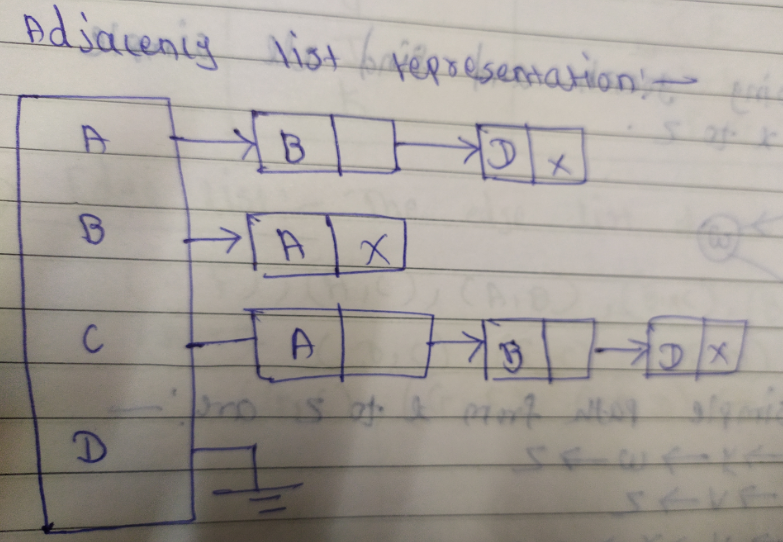 Adjacency list representation:→
A → B → D X
B → A X
C A → B → D X
D